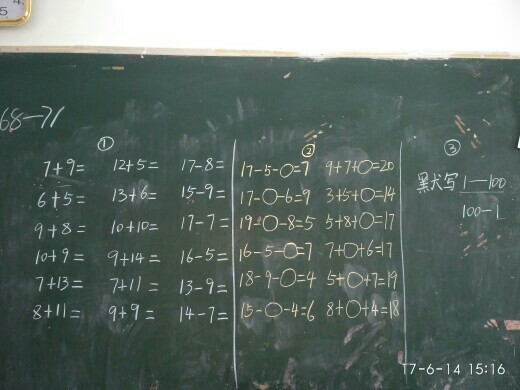 68-71
①
7+9= 12+5= 17-8=
6+5= 13+6= 15-9=
9+8= 10+10= 17-7=
10+9= 9+14= 16-5=
7+13= 7+11= 13-9=
8+11= 9+9= 14-7=
②
17-5-○=7 9+7+○=20
17-○-6=9 3+5+○=14
19-○-8=5 5+8+○=17
16-5-○=7 7+○+6=17
18-9-○=4 5+○+7=19
15-○-4=6 8+○+4=18
③
默写 1—100
100-1
17-6-14 15:16